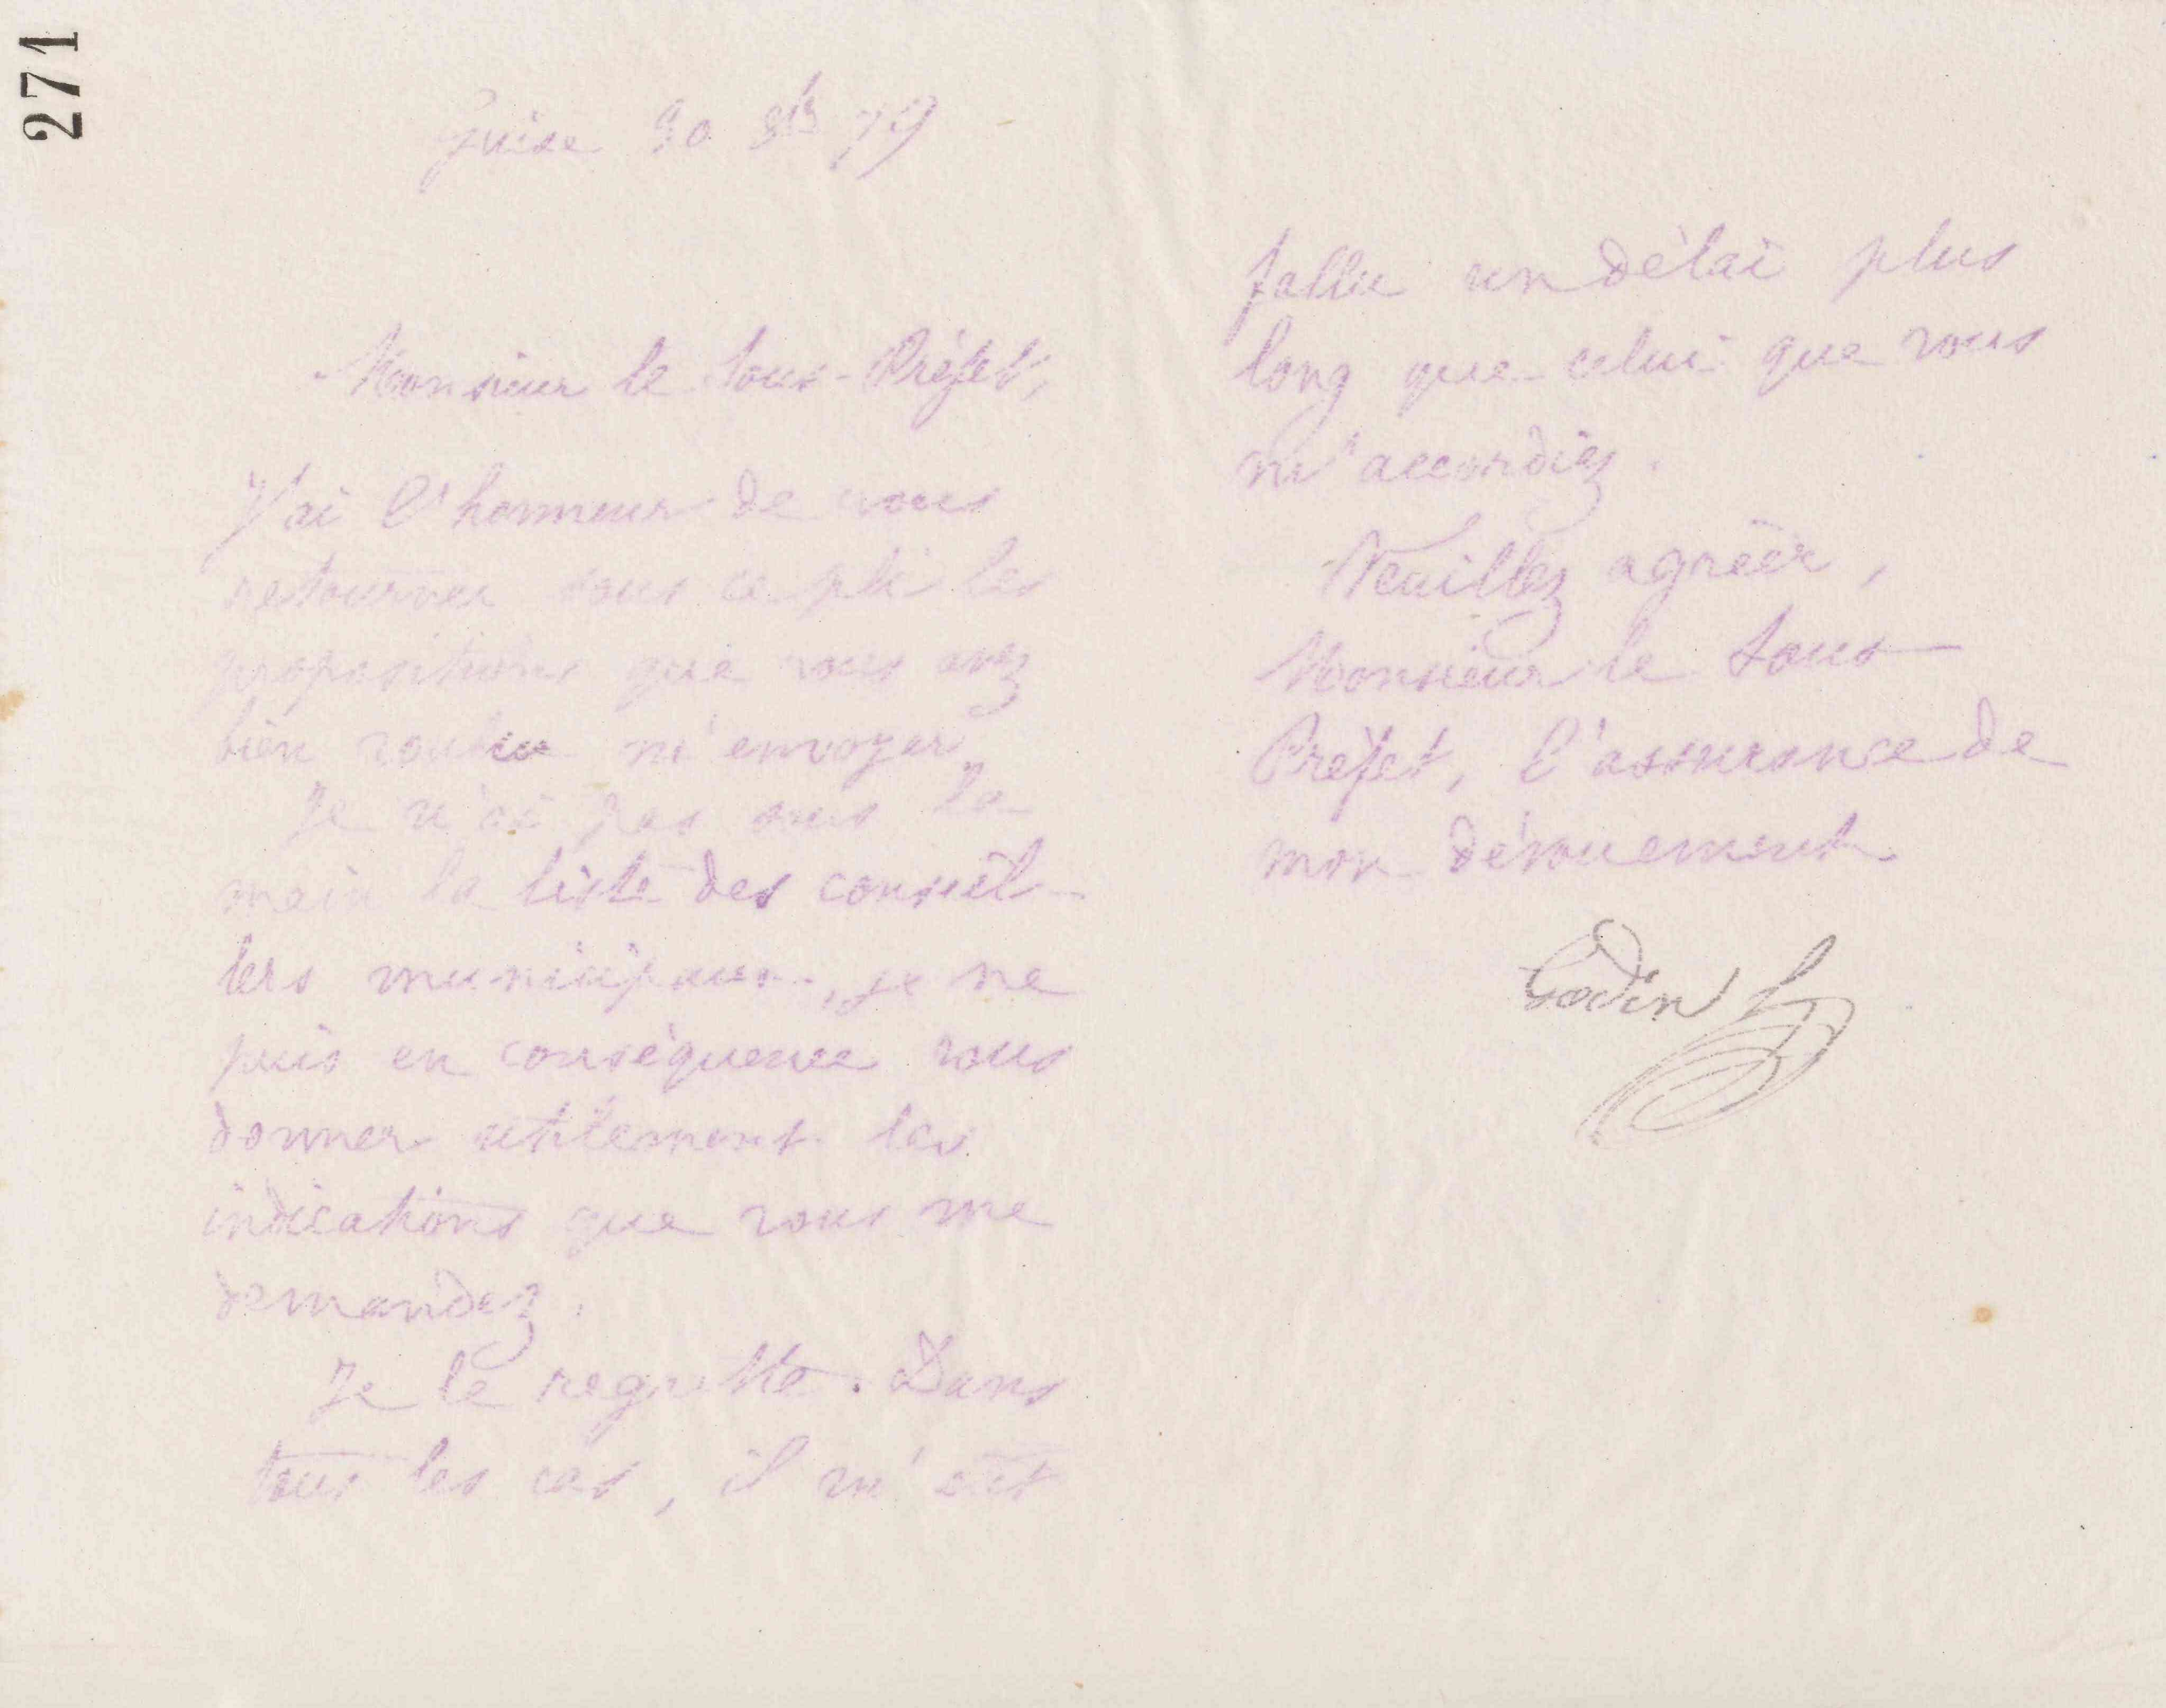 271
Guise 30 8bre 79
Monsieur le Sous-Préfet,
J'ai l'honneur de vous
retourner sous ce pli les
propositions que vous avez
bien voulu m'envoyer.
Je n'ai pas sous la
main la liste des conseil-
lers municipaux, je ne
puis en conséquence vous
donner utilement les
indications que vous me
demandez.
Je le regrette. Dans
tous les cas, il m'eût
fallu un délai plus
long que celui que vous
m'accordiez.
Veuillez agréer,
Monsieur le Sous-
Préfet, l'assurance de
mon dévouement
Godin